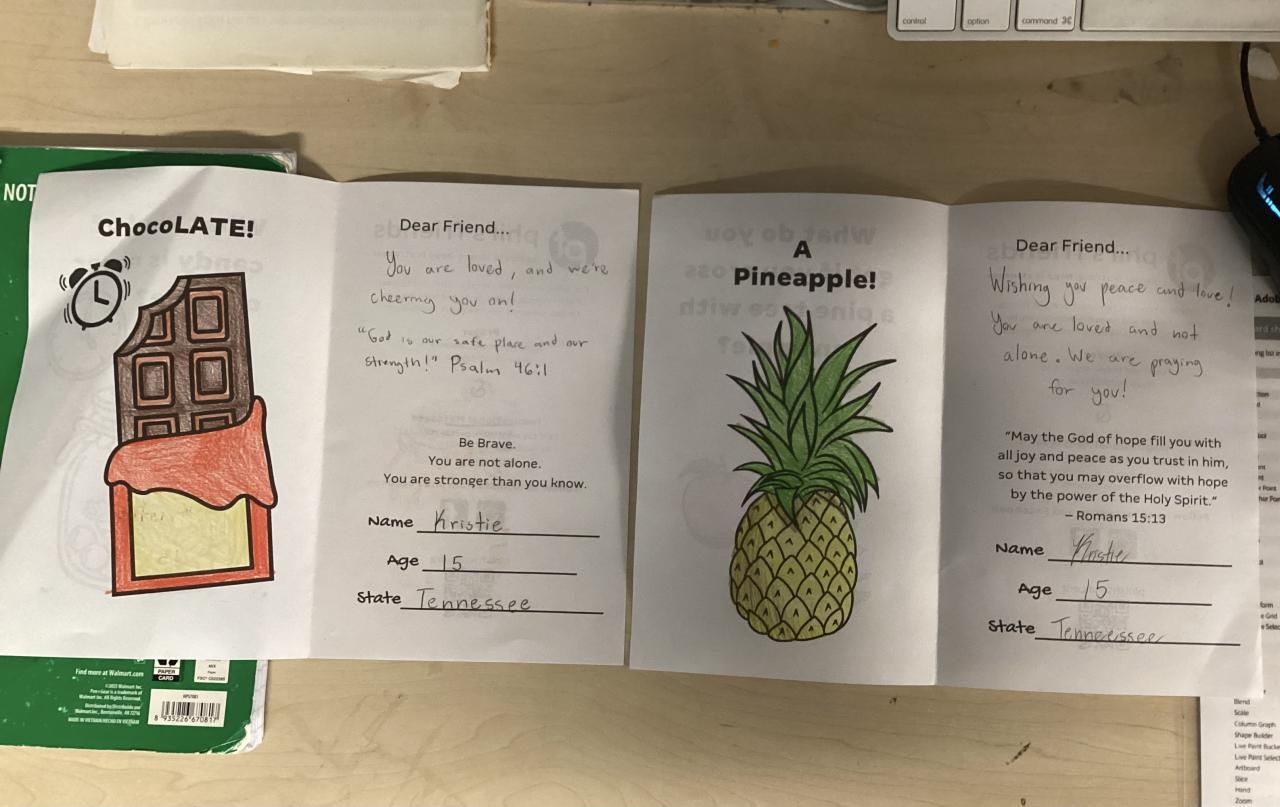 control
option
command ⌘
NOT
ChocoLATE!
Dear Friend...
You are loved, and we're
cheering you on!
"God is our safe place and our
strength!" Psalm 46:1
Be Brave.
You are not alone.
You are stronger than you know.
Name Kristie
Age 15
State Tennessee
A
Pineapple!
Dear Friend...
Wishing you peace and love!
You are loved and not
alone. We are praying
for you!
"May the God of hope fill you with
all joy and peace as you trust in him,
so that you may overflow with hope
by the power of the Holy Spirit."
– Romans 15:13
Name Kristie
Age 15
State Tennessee
Find more at Walmart.com
MADE IN VIETNAM/HECHO EN VIETNAM
PAPER
CARD
MIX
8 935226 670817
Adob
Blend
Scale
Column Graph
Shape Builder
Live Paint Bucke
Live Paint Select
Artboard
Slice
Hand
Zoom